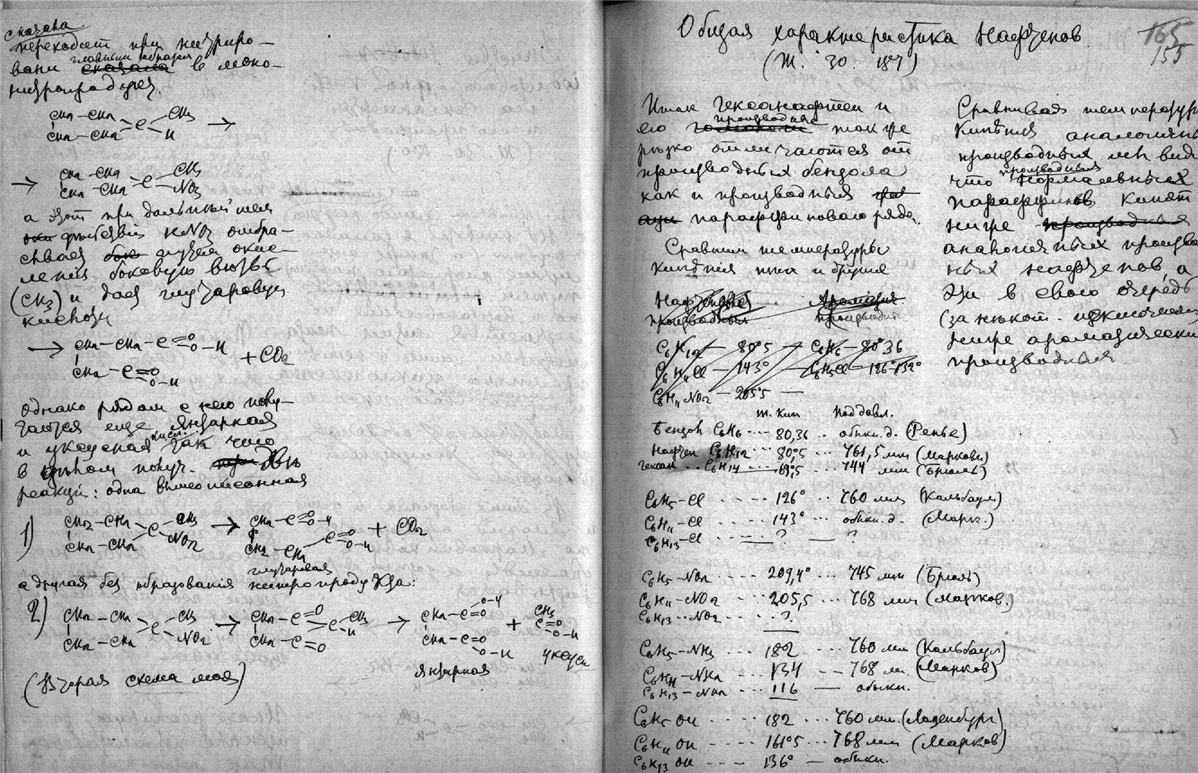 сказава
переходит при нитриро-
вани главным образом сказала в моно-
нитропродукт.
CH2–CH2 CH3
CH2–CH2 C H →
→ CH2–CH2 C CH3
CH2–CH2 NO2
а этот при дальнейшем
действии HNO3 отбра-
сывая путем окис-
ления боковую
(CH3) и дая глутаровую
кислоту
→ CH2–CH2–C=O O–H + CO2
CH2–C=O O–H
однако рядом с нею полу-
чается еще янтарная
и уксусная кисл. так что
в данном получ. две
реакции: одна вышеописанная
1) CH2–CH2 C CH3 → CH2–C=O O–H + CO2
CH2–CH2 NO2 CH2–CH2 C=O O–H
глутаровая
а другая без образования нитропродукта:
2) CH2–CH2 C CH3 → CH2–C=O CH3 → CH2–C=O O–H + CH3
CH2–CH2 NO2 CH2–C=O C H CH2–C=O O–H C=O O–H
янтарная уксусн
(Вторая схема моя)
165
155
Общая характеристика Нафтенов
(Ж. 30. 187)
Итак гексанафтен и
его производные также
резко отличаются от
производных бензола
как и производных
парафинового ряда.
Сравним температуры
кипения тех и других
Нафтенов Аромация
производныя производн.
C6H12 — 80°5 — C6H6 — 80°36
C6H11Cl — 143° — C6H5Cl — 126°–132°
C6H11NO2 — 205°5 —
т. кип под давл.
Бензол C6H6 ··· 80,36 ·· обыкн. д. (Реньо)
Нафтен C6H12 ··· 80°5 ·· 761,5 мм (Марков)
гексан ·· C6H14 ··· 69°5 ·· 744 мм (Брюль)
C6H5–Cl ···· 126° ··· 760 мм (Кальбаум)
C6H11–Cl ···· 143° ··· обыкн. д. (Марк.)
C6H13–Cl ···· ? — ?
C6H5–NO2 ··· 209,4° ··· 745 мм (Брюль)
C6H11–NO2 ··· 205,5 ··· 768 мм (Марков.)
C6H13–NO2 ··· ?
C6H5–NH2 ···· 182 ··· 760 мм (Кальбаум)
C6H11–NH2 ···· 134 ··· 768 м. (Марков)
C6H13–NH2 ··· 116 — обыкн.
C6H5 OH ···· 182 ··· 760 мм. (Ладенбург)
C6H11 OH ···· 161°5 ··· 768 мм (Марков)
C6H13 OH ···· 136° — обыкн.
Сравнивая температур
кипения аналогичн
производных мы вид
что производныя нормальных
парафинов кипят
ниже производная
аналогичных произво
ных нафтенов, а
эти в свою очередь
(за некот. исключением
ниже ароматически
производныя